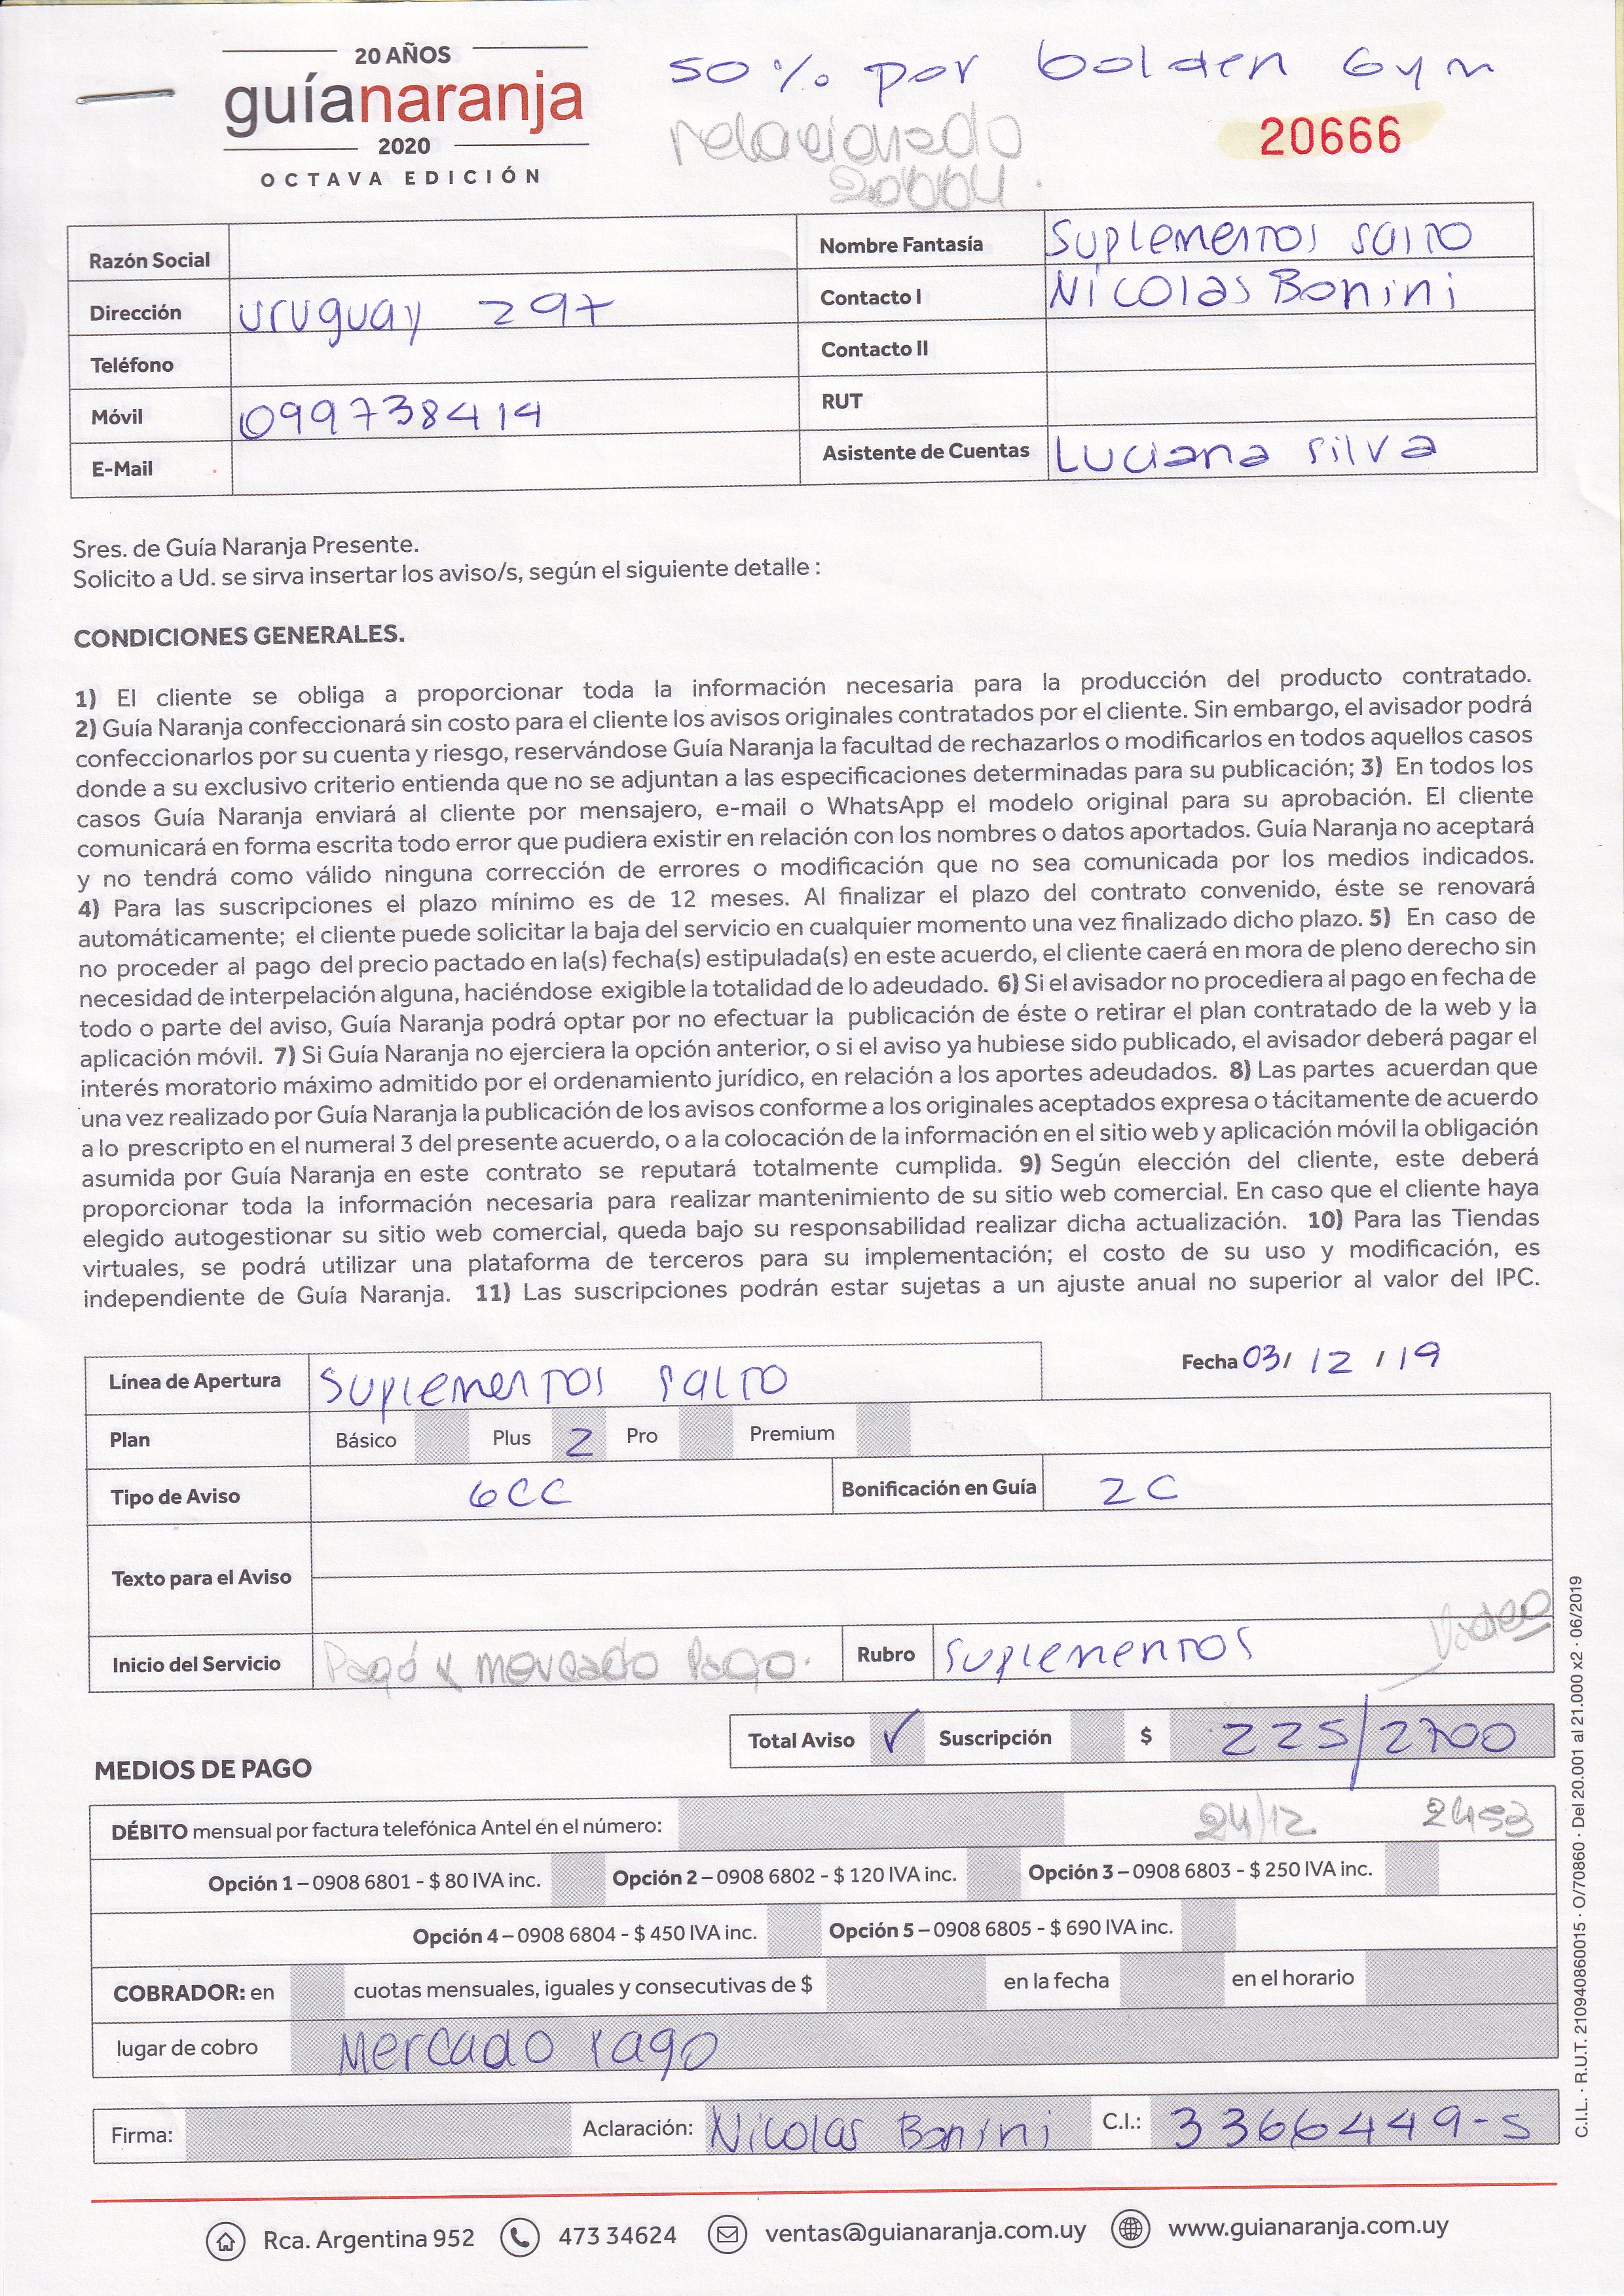 20 AÑOS
guíanaranja
2020
OCTAVA EDICIÓN
50 % por Golden Gym
relacionado
20664.
20666
Razón Social
Nombre Fantasía Suplementos Salto
Dirección Uruguay 297
Contacto I Nicolas Bonini
Teléfono
Contacto II
Móvil 099738414
RUT
E-Mail
Asistente de Cuentas Luciana Silva
Sres. de Guía Naranja Presente.
Solicito a Ud. se sirva insertar los aviso/s, según el siguiente detalle :
CONDICIONES GENERALES.
1) El cliente se obliga a proporcionar toda la información necesaria para la producción del producto contratado.
2) Guía Naranja confeccionará sin costo para el cliente los avisos originales contratados por el cliente. Sin embargo, el avisador podrá
confeccionarlos por su cuenta y riesgo, reservándose Guía Naranja la facultad de rechazarlos o modificarlos en todos aquellos casos
donde a su exclusivo criterio entienda que no se adjuntan a las especificaciones determinadas para su publicación; 3) En todos los
casos Guía Naranja enviará al cliente por mensajero, e-mail o WhatsApp el modelo original para su aprobación. El cliente
comunicará en forma escrita todo error que pudiera existir en relación con los nombres o datos aportados. Guía Naranja no aceptará
y no tendrá como válido ninguna corrección de errores o modificación que no sea comunicada por los medios indicados.
4) Para las suscripciones el plazo mínimo es de 12 meses. Al finalizar el plazo del contrato convenido, éste se renovará
automáticamente; el cliente puede solicitar la baja del servicio en cualquier momento una vez finalizado dicho plazo. 5) En caso de
no proceder al pago del precio pactado en la(s) fecha(s) estipulada(s) en este acuerdo, el cliente caerá en mora de pleno derecho sin
necesidad de interpelación alguna, haciéndose exigible la totalidad de lo adeudado. 6) Si el avisador no procediera al pago en fecha de
todo o parte del aviso, Guía Naranja podrá optar por no efectuar la publicación de éste o retirar el plan contratado de la web y la
aplicación móvil. 7) Si Guía Naranja no ejerciera la opción anterior, o si el aviso ya hubiese sido publicado, el avisador deberá pagar el
interés moratorio máximo admitido por el ordenamiento jurídico, en relación a los aportes adeudados. 8) Las partes acuerdan que
una vez realizado por Guía Naranja la publicación de los avisos conforme a los originales aceptados expresa o tácitamente de acuerdo
a lo prescripto en el numeral 3 del presente acuerdo, o a la colocación de la información en el sitio web y aplicación móvil la obligación
asumida por Guía Naranja en este contrato se reputará totalmente cumplida. 9) Según elección del cliente, este deberá
proporcionar toda la información necesaria para realizar mantenimiento de su sitio web comercial. En caso que el cliente haya
elegido autogestionar su sitio web comercial, queda bajo su responsabilidad realizar dicha actualización. 10) Para las Tiendas
virtuales, se podrá utilizar una plataforma de terceros para su implementación; el costo de su uso y modificación, es
independiente de Guía Naranja. 11) Las suscripciones podrán estar sujetas a un ajuste anual no superior al valor del IPC.
Línea de Apertura Suplementos Salto
Fecha 03/ 12 / 19
Plan Básico Plus 2 Pro Premium
Tipo de Aviso 6CC Bonificación en Guía 2C
Texto para el Aviso
Inicio del Servicio Pagó x mercado Pago. Rubro Suplementos
Video
Total Aviso ✓ Suscripción $ 225/2700
MEDIOS DE PAGO
DÉBITO mensual por factura telefónica Antel en el número: 24/12. 2453
Opción 1 – 0908 6801 - $ 80 IVA inc. Opción 2 – 0908 6802 - $ 120 IVA inc. Opción 3 – 0908 6803 - $ 250 IVA inc.
Opción 4 – 0908 6804 - $ 450 IVA inc. Opción 5 – 0908 6805 - $ 690 IVA inc.
COBRADOR: en cuotas mensuales, iguales y consecutivas de $ en la fecha en el horario
lugar de cobro Mercado Pago
Firma: Aclaración: Nicolas Bonini C.I.: 3366449-5
Rca. Argentina 952 473 34624 ventas@guianaranja.com.uy www.guianaranja.com.uy
C.I.L. · R.U.T. 210940860015 · O/70860 · Del 20.001 al 21.000 x2 · 06/2019